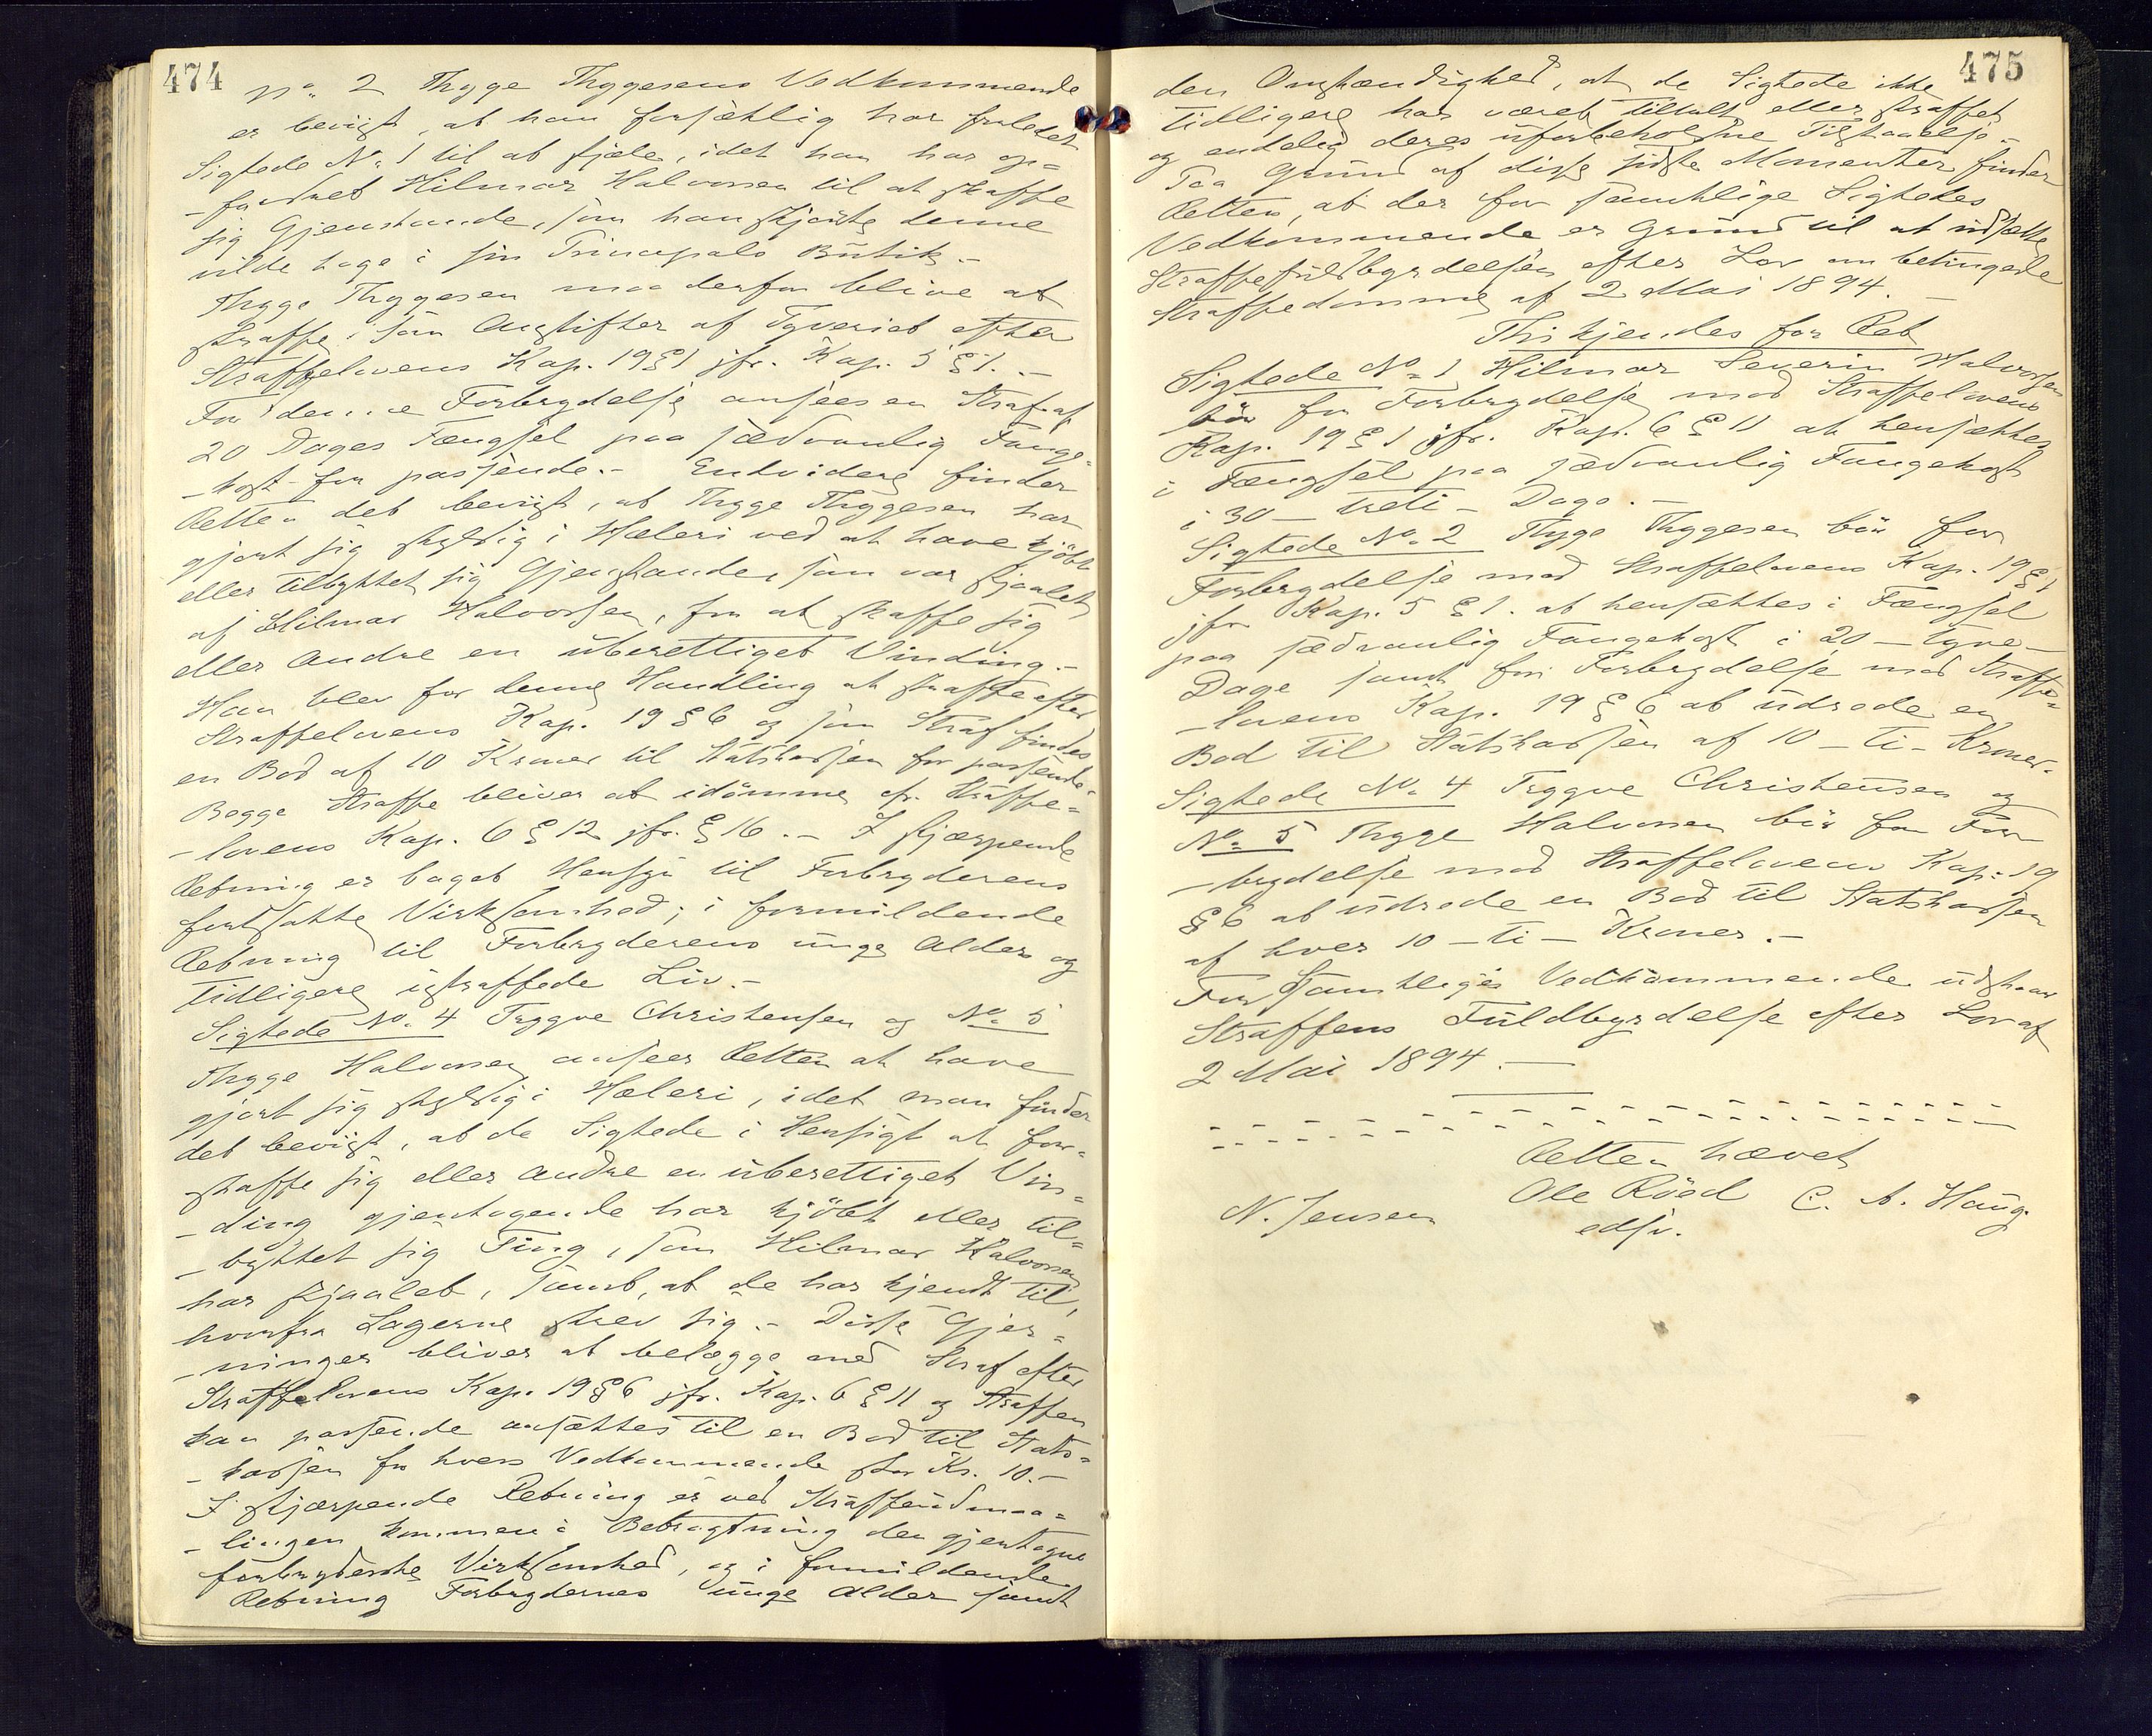 474
No 2 Thyge Thygesens Vedkommende
er bevist, at han forsætlig har forledet
Sigtede No 1 til at stjæle, idet han har op=
-fordret Hilmar Halvorsen til at skaffe
sig Gjenstande, som han skjønte denne
vilde tage i sin Principals Butik.-
Thyge Thygesen maa derfor blive at
straffe som Anstifter af Tyveriet efter
Straffelovens Kap. 19 § 1 jfr. Kap. 5 § 1.-
For denne Forbrydelse ansees en Straf af
20 Dages Fængsel paa sædvanlig Fange=
-kost for passende.- Endvidere finder
Retten det bevist, at Thyge Thygesen har
gjort sig skyldig i Hæleri ved at have kjöbt
eller tilbyttet sig Gjenstande, som var stjaalet
af Hilmar Halvorsen, for at skaffe sig
eller Andre en uberettiget Vinding.-
Han blev for denne Handling at straffe efter
Straffelovens Kap. 19 § 6 og som Straf findes
en Bod af 10 Kroner til Statskassen for passende.-
Begge Straffe bliver at idömme efr. Straffe=
-lovens Kap. 6 § 12 jfr. § 16.- I skjærpende
Retning er taget Hensyn til Forbryderens
fortsatte Virksomhed; i formildende
Retning til Forbryderens unge Alder og
tidligere ustraffede Liv.-
Sigtede No. 4 Trygve Christensen og No 5
Thyge Halvorsen ansees Retten at have
gjort sig skyldig i Hæleri, idet man finder
det bevist, at de Sigtede i Hensigt at for=
skaffe sig eller Andre en uberettiget Vin=
-ding gjentagende har kjöbt eller til=
-byttet sig Ting, som Hilmar Halvorsen
har stjaalet, samt, at de har kjendt til,
hvorfra Sagerne skrev sig.- Disse Gjer=
-ninger bliver at belægge med Straf efter
Straffelovens Kap. 19 § 6 jfr. Kap. 6 § 11 og Straffen
kan passende ansættes til en Bod til Stats=
-kassen for hvers Vedkommende stor Kr. 10.-
I skjærpende Retning er ved Straffeudmaa=
-lingen kommen i Betragtning den gjentagne
forbryderske Virksomhed, og i formildende
Retning Forbrydernes unge Alder samt
475
den Omstændighed, at de Sigtede ikke
tidligere har været tiltalt eller straffet
og endelig deres uforbeholdne Tilstaaelse.-
Paa Grund af disse sidste Momenter finder
Retten, at der for samtlige Sigtedes
Vedkommende er Grund til at udsætte
Straffefuldbyrdelsen efter Lov om betingede
Straffedomme af 2 Mai 1894.-
Thi kjendes for Ret
Sigtede No 1 Hilmar Severin Halvorsen
bör for Forbrydelse mod Straffelovens
Kap. 19 § 1 jfr. Kap. 6 § 11 at hensættes
i Fængsel paa sædvanlig Fangekost
i 30 - treti - Dage.-
Sigtede No. 2 Thyge Thygesen bör for
Forbrydelse mod Straffelovens Kap. 19 § 1
jfr Kap. 5 § 1. at hensættes i Fængsel
paa sædvanlig Fangekost i 20 - tyve -
Dage samt for Forbrydelse mod Straffe=
-lovens Kap. 19 § 6 at udrede en
Bod til Statskassen af 10 - ti - Kroner.
Sigtede No. 4 Trygve Christensen og
No. 5 Thyge Halvorsen bör for For
-brydelse mod Straffelovens Kap. 19
§ 6 at udrede en Bod til Statskassen
af hver 10 - ti - Kroner.-
For Samtliges Vedkommende udstaar
Straffens Fuldbyrdelse efter Lov af
2 Mai 1894.-
Retten hævet
N. Jensen Ole Röed C. A. Haug.
edsv.